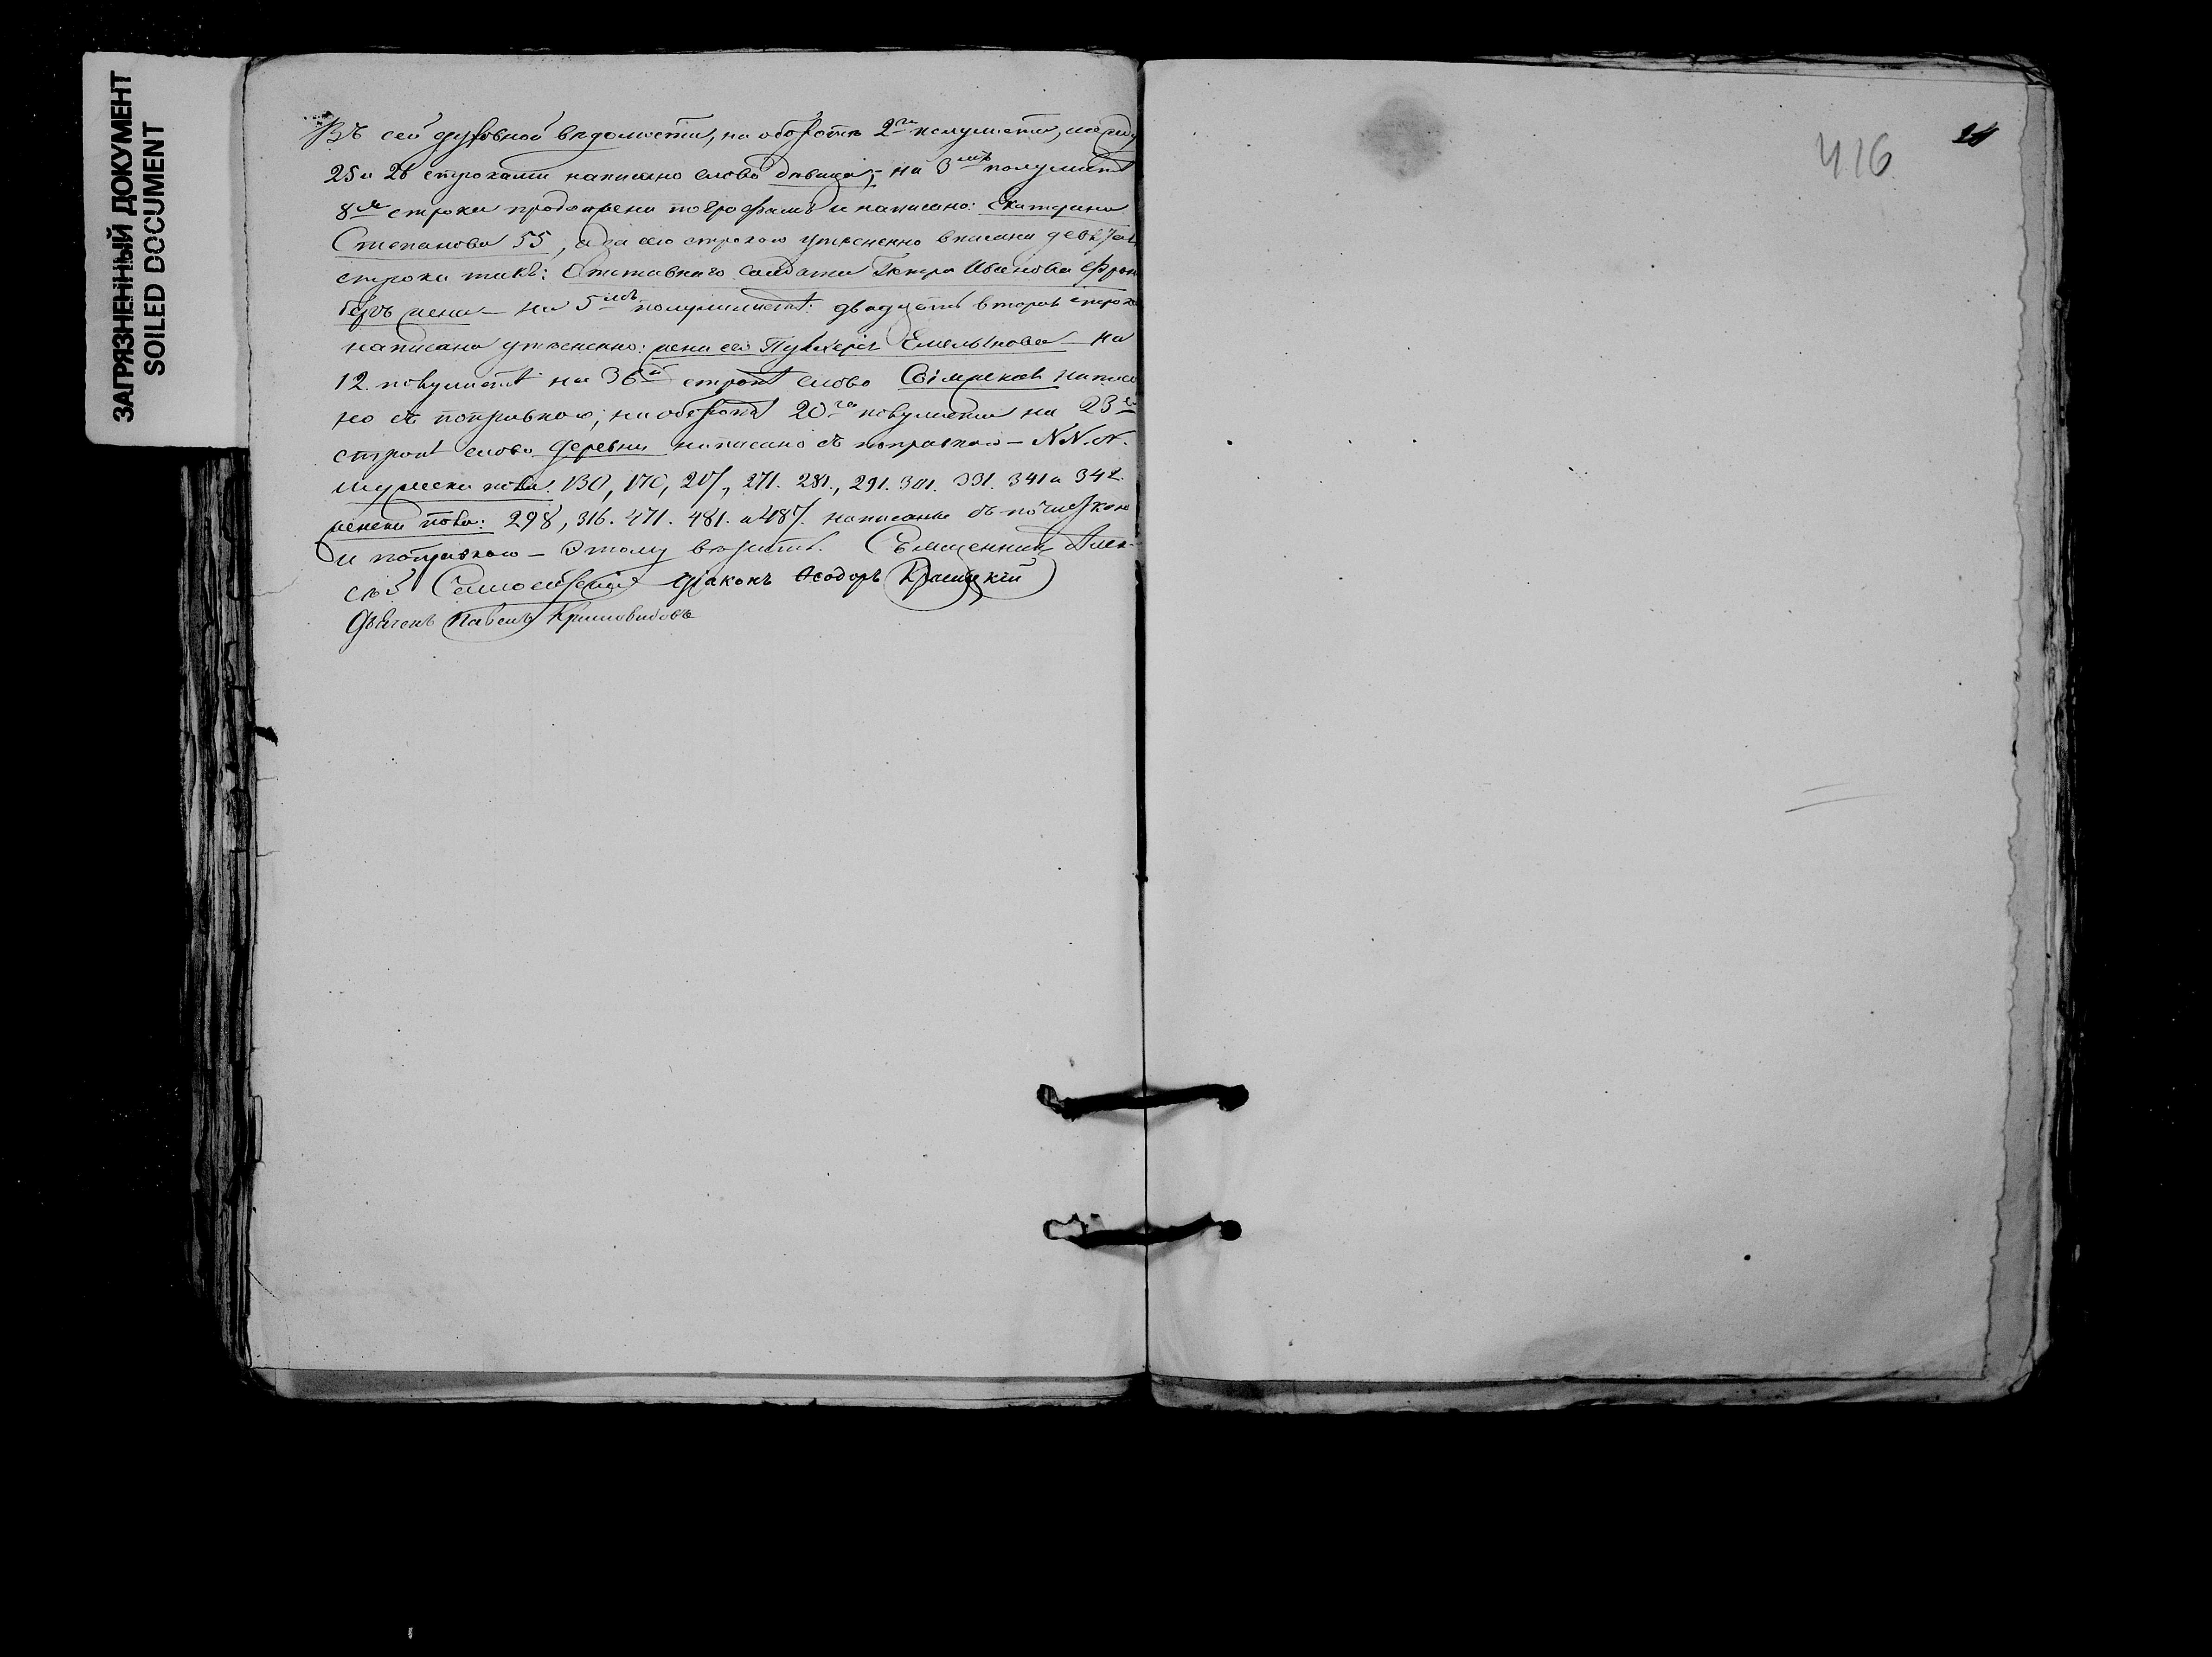 ЗАГРЯЗНЕННЫЙ ДОКУМЕНТ
SOILED DOCUMENT
Въ сей духовной вѣдомости, на оборотѣ 2го полулиста, между
25 и 26 строками написано слово дѣвица; на 3мъ полулистѣ
8я строка по графамъ и написано: Екатерина
Степанова 55, а за сею строкою утѣсненно вписана девятая
строка такъ: Отставнаго солдата Петра Иванова
жена — на 5мъ полулистѣ: двадцать вторая строка
написана утѣсненно: жена его Пульхерія Емельянова — на
12 полулистѣ на 36й строкѣ слово написа
но съ поправкою; на оборотѣ 20го полулиста на 23й
строкѣ слово деревни написано съ поправкою — N.N.N.
мужеска пола: 130, 170, 207, 271. 281., 291. 301. 331. 341 и 342.
женска пола: 298, 316. 471. 481. и 487. написаны съ почисткою
и поправкою — Этому вѣрить. Священникъ Алек-
сѣй Діаконъ Ѳеодоръ
Дьячекъ Павелъ Кришовидовъ
416
21